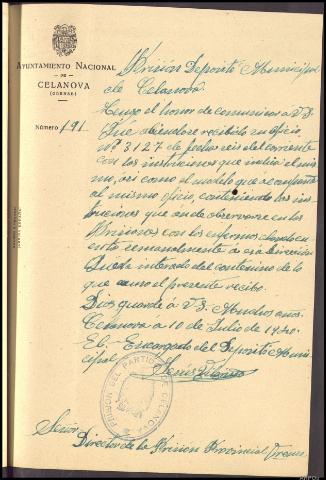 AYUNTAMIENTO NACIONAL
DE
CELANOVA
(ORENSE)
Número 191
Prisión Deposito Municipal
de Celanova.
Tengo el honor de comunicar á V.S.
Que habiendose recibido su oficio,
Nº 3127 de fecha seis del corriente
con las instruciones que indica el mis
mo, asi como el modelo que acompaña
al mismo oficio, conteniendo las ins
truciones que an de observarse en las
Prisiones con los enfermos dando cu
enta semanalmente á esa Direcion
Quedo interado del contenino de lo
que acuso el presente recibo.
Dios guarde á V.S. Muchos años.
Celanova á 10 de Julio de 1940.
El Encargado del Deposito Muni
cipal
PRISION DEL PARTIDO DE CELANOVA
Señor
Director de la Prision Provincial Orense